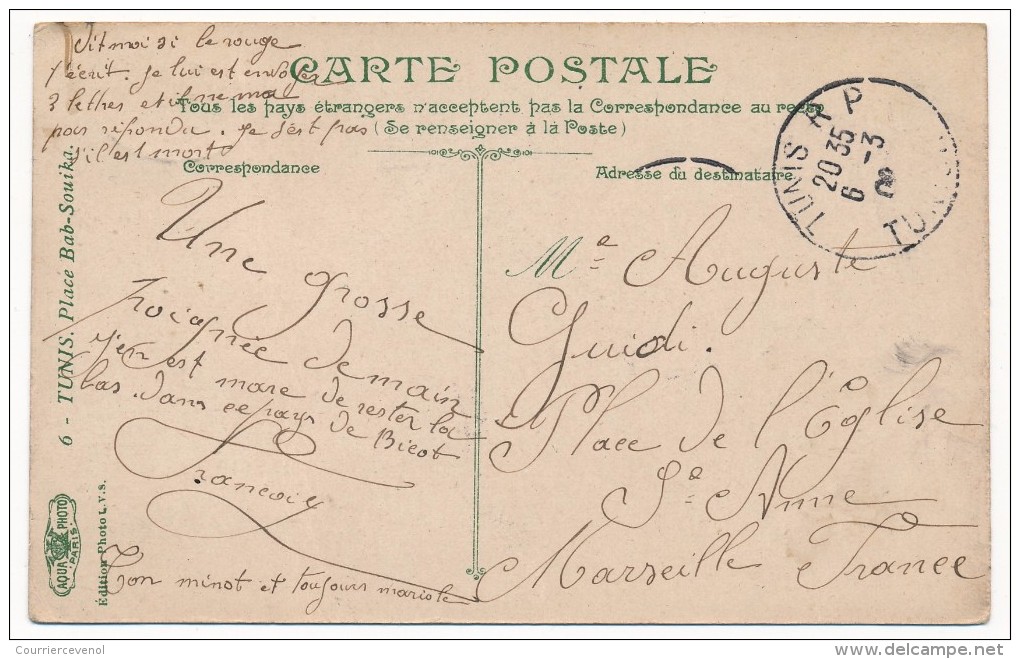 Dit moi si le rouge
t'écrit. Je lui est envoyer
3 lettres et il ne ma
pas répondu. Je s'est pas
s'il est morts
CARTE POSTALE
Tous les pays étrangers n'acceptent pas la Correspondance au recto
(Se renseigner à la Poste)
Correspondance
Adresse du destinataire
TUNIS R P
20 35
6 - 3
TUN
Une grosse
Poignée de main
j'en est mare de rester la
bas. dans ce pays de Bicot
François
Ton minot et toujours mariole
Me Auguste
Guidi.
Place de l'Église
Ste Anne
Marseille France
6 - TUNIS. Place Bab-Souika.
AQUA PHOTO
PARIS
Édition Photo L.V.S.
Couriercevenol
delcampe.net